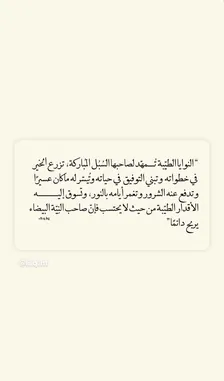 "النوايا الطيّبة تُمهّد لصاحبها السُبل المُباركة، تزرع الخير
في خطواته وتبني التوفيق في حياته وتُيسّر له ماكان عسيرًا
وتدفع عنه الشرور وتغمر أيامه بالنور، وتسوق إليه
الأقدار الطيّبة من حيث لا يحتسب فإنّ صاحب النيّة البيضاء
يربح دائمًا"